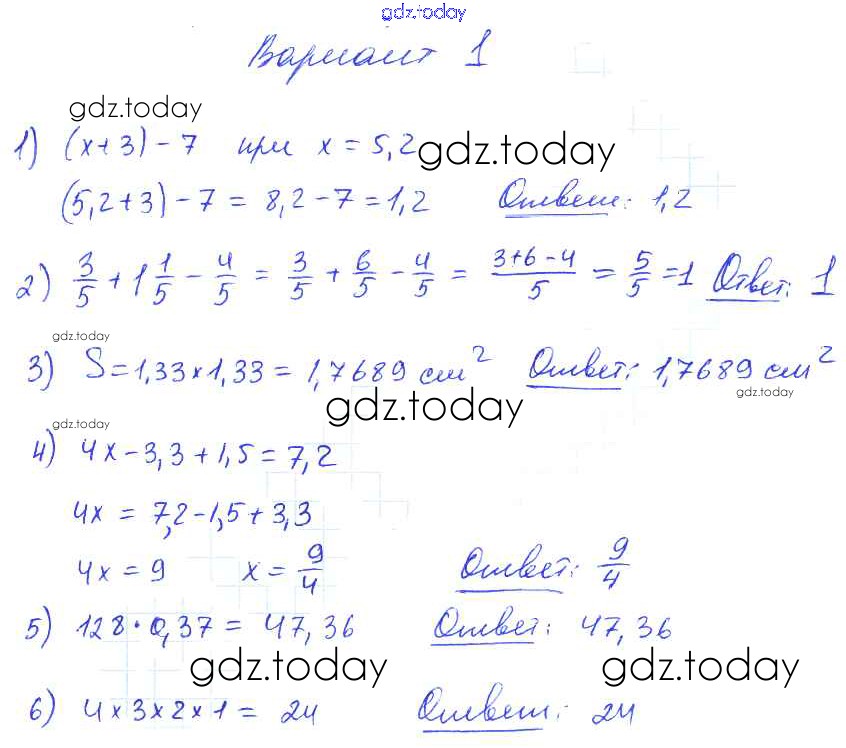 gdz.today
Вариант 1
gdz.today
1) (x+3) - 7 при x = 5,2 gdz.today
(5,2+3) - 7 = 8,2 - 7 = 1,2 Ответ: 1,2
2) 3/5 + 1 1/5 - 4/5 = 3/5 + 6/5 - 4/5 = (3+6-4)/5 = 5/5 = 1 Ответ: 1
gdz.today
3) S = 1,33 × 1,33 = 1,7689 см² Ответ: 1,7689 см²
gdz.today gdz.today
gdz.today
4) 4x - 3,3 + 1,5 = 7,2
4x = 7,2 - 1,5 + 3,3
4x = 9 x = 9/4 Ответ: 9/4
5) 128 · 0,37 = 47,36 Ответ: 47,36
gdz.today gdz.today
6) 4 × 3 × 2 × 1 = 24 Ответ: 24